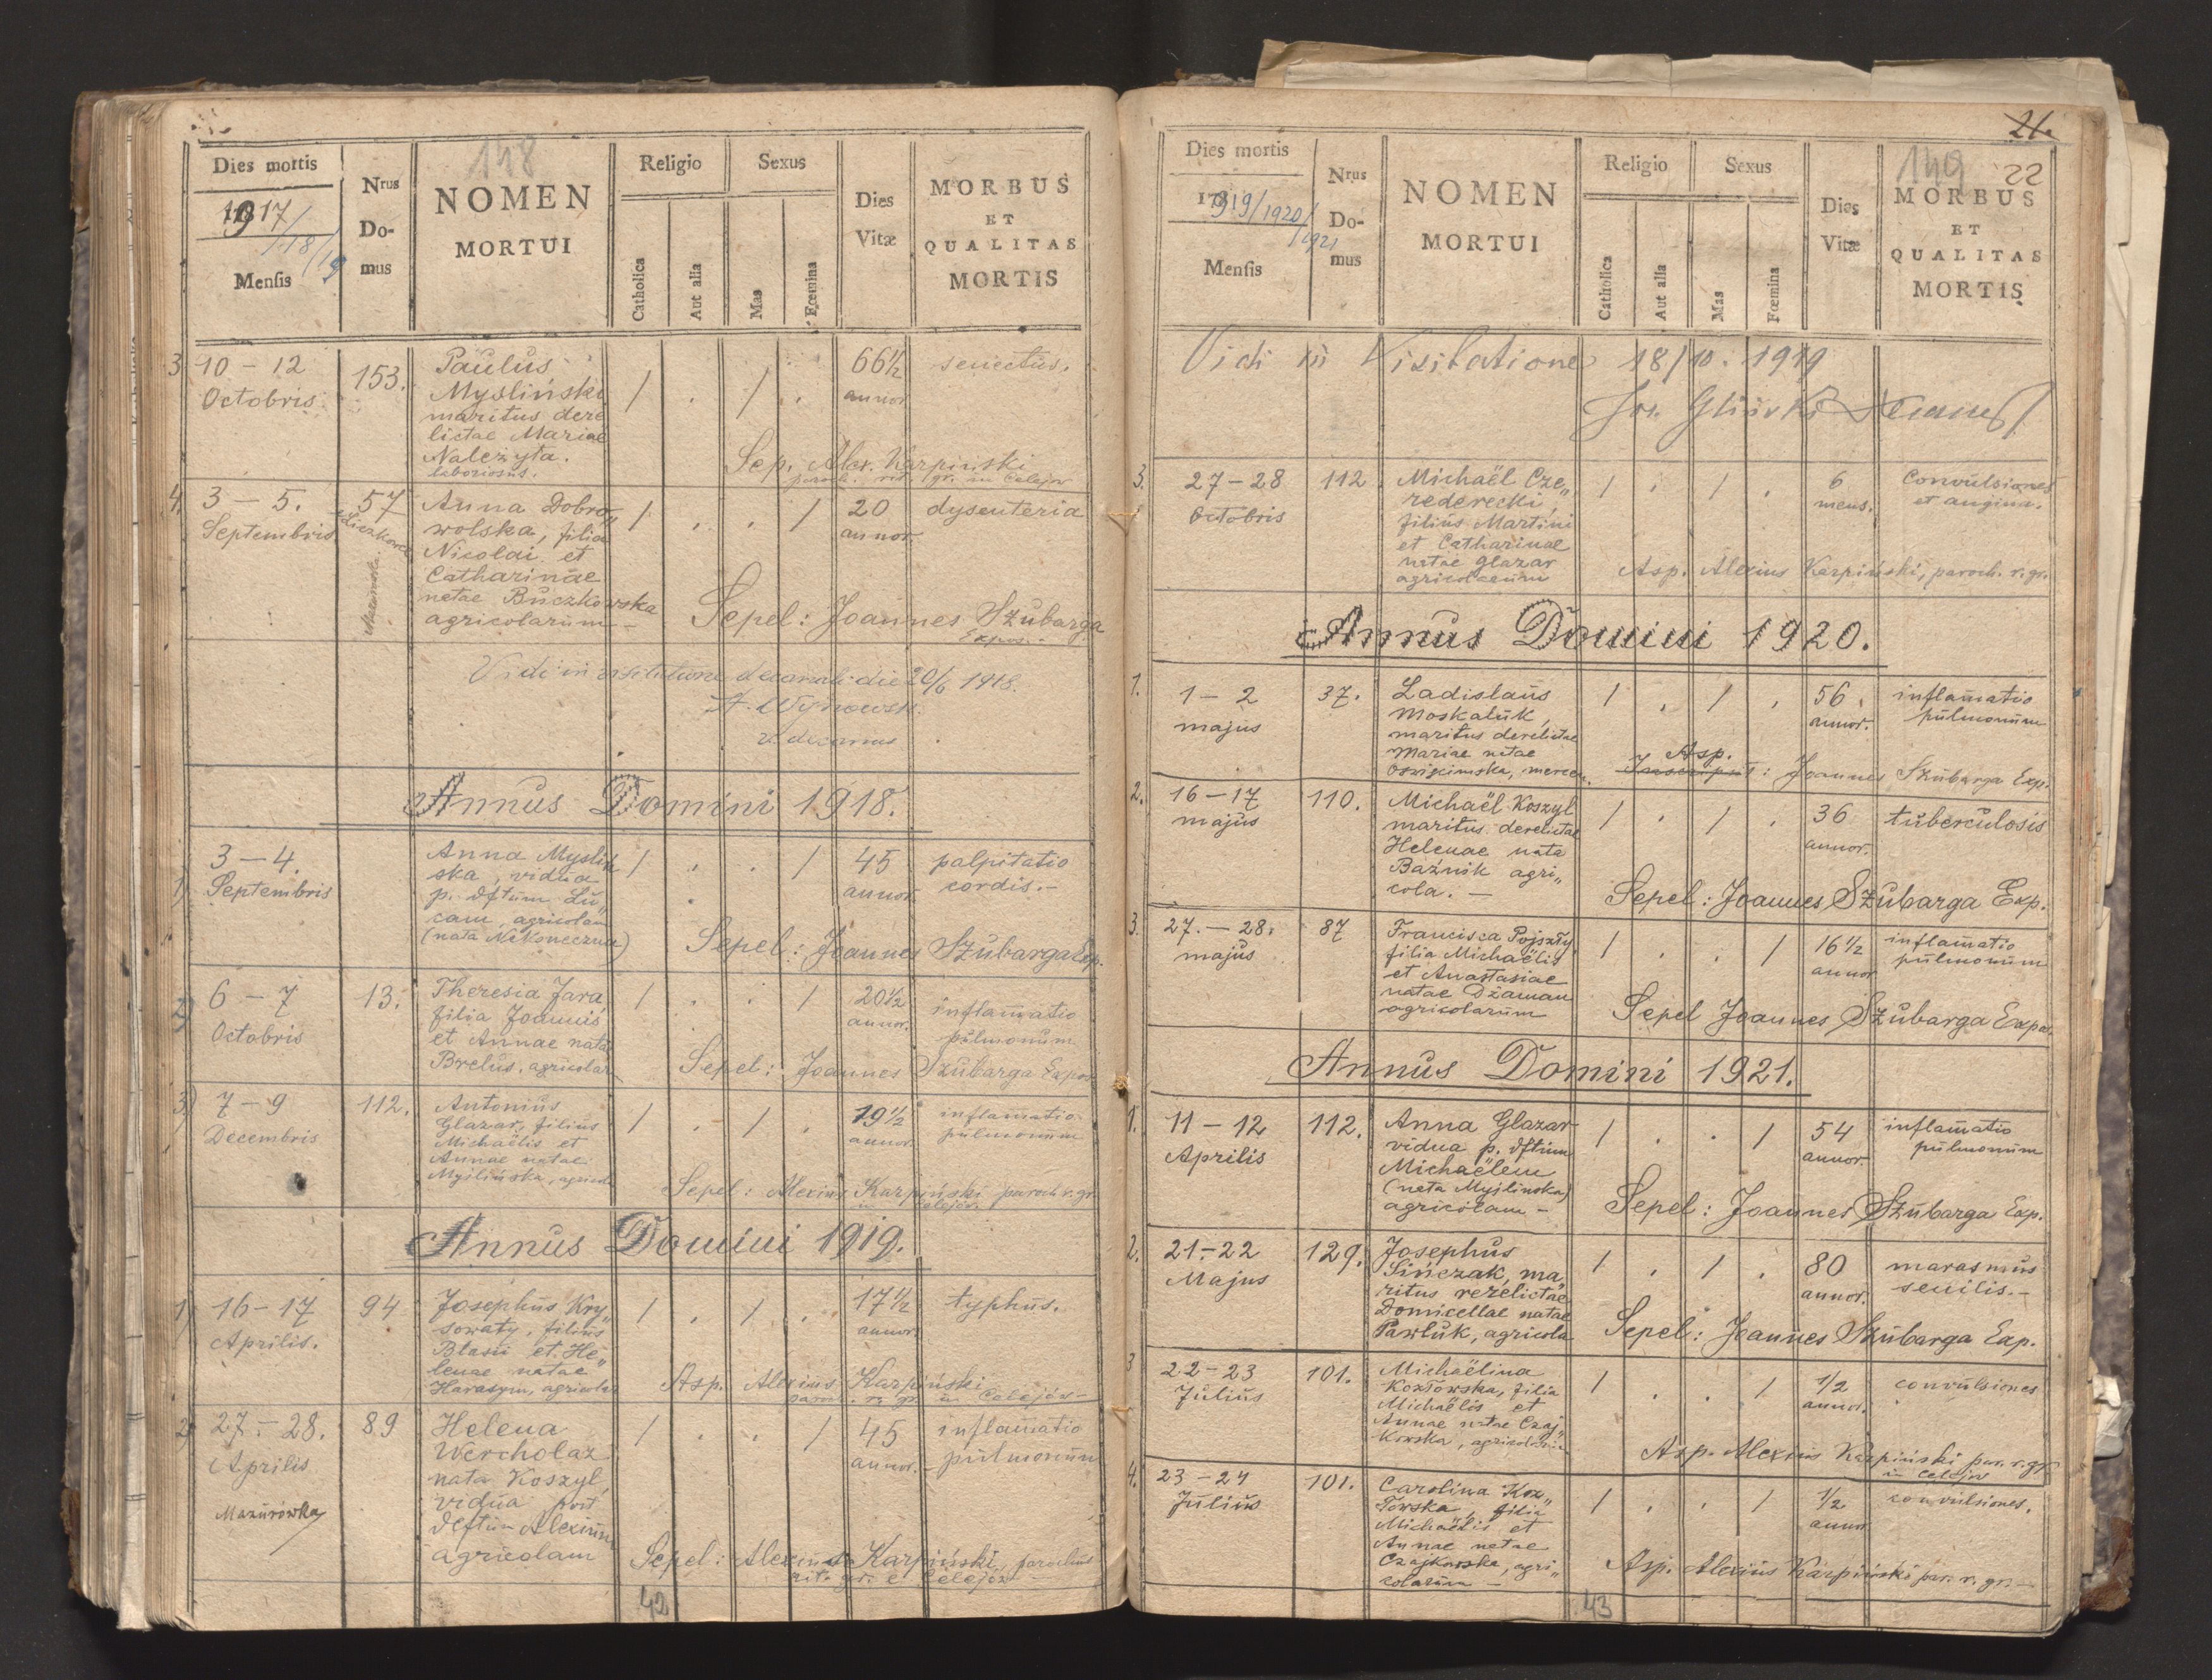 148
Dies mortis
1917/
/18/19
Mensis
Nrus
Do-
mus
NOMEN
MORTUI
Religio
Catholica
Aut alia
Sexus
Mas
Fœmina
Dies
Vitæ
MORBUS
ET
QUALITAS
MORTIS
3 10 – 12
Octobris
153.
Paulus
Mysliński
maritus dere
lictae Mariae
Należyta.
laboriosus.
1 . 1 .
66½
annor.
senectus.
Sep. Alex. Karpinski
paroch. rit. gr. in Celejow
4. 3 – 5.
Septembris
57
Anna Dobro„
wolska, filia
Nicolai et
Catharinae
natae Buczkowska
agricolarum –
1 . . 1
20
annor.
dysenteria
Sepel: Joannes Szubarga
Expos.
Vidi in visitatione decanali die 20/6 1918.
v. decanus
Annus Domini 1918.
1) 3 – 4.
Septembris
Anna Myslin
ska, vidua
p. dftum Lu„
cam agricolam
(nata Nekoneczna)
1 . . 1
45
annor.
palpitatio
cordis. –
Sepel: Joannes Szubarga Exp.
2) 6 – 7
Octobris
13.
Theresia Jara
filia Joannis
et Annae nata
Brelus, agricolar
1 . . 1
20½
annor.
inflamatio
pulmonum
Sepel: Joannes Szubarga Expos
3) 7 – 9
Decembris
112.
Antonius
Glazar, filius
Michaëlis et
Annae natae
Myślińska, agricola
1 . 1 .
19½
annor.
inflamatio
pulmonum
Sepel: Alexius Karpiński paroch. r. gr.
in Celejów
Annus Domini 1919.
1) 16 – 17
Aprilis.
94
Josephus Kry„
sowaty, filius
Blasii et He„
lenae natae
Harasym, agricola
1 . 1 .
17½
annor.
typhus.
Asp. Alexius Karpiński
paroch. r. gr. in Celejów –
2) 27. – 28.
Aprilis
Mazurówka
89
Helena
Wercholaz
nata Koszyl,
vidua post
dftum Alexium
agricolam
1 . . 1
45
annor. –
inflamatio
pulmonum
Sepel: Alexius Karpiński, parochus
rit. gr. e Celejów
42
21.
149 22
Dies mortis
1919/1920/
/1921
Mensis
Nrus
Do-
mus
NOMEN
MORTUI
Religio
Catholica
Aut alia
Sexus
Mas
Fœmina
Dies
Vitæ
MORBUS
ET
QUALITAS
MORTIS
Vidi in Visitatione 18/10. 1919
3. 27 – 28
Octobris
112
Michaël Cze„
rederecki,
filius Martini
et Catharinae
natae Glazar
agricolarum
1 . 1 .
6
mens.
Convulsiones
et angina.
Asp. Alexius Karpiński, paroch. r. gr.
Annus Domini 1920.
1. 1 – 2
majus
37.
Ladislaus
Moskaluk,
maritus derelictae
Mariae natae
1 . 1 .
56.
annor.
inflamatio
pulmonum
Asp.
Inscripsit: Joannes Szubarga Exp.
2. 16 – 17
majus
110.
Michaël Koszyl
maritus derelictae
Helenae nata
Baźnik agri„
cola. –
1 . 1 .
36
annor.
tuberculosis
Sepel: Joannes Szubarga Exp.
3. 27. – 28.
majus
87
Francisca Pojszły,
filia Michaëlis
et Anastasiae
natae Dżaman
agricolarum
1 . . 1
16½
annor
inflamatio
pulmonum
Sepel Joannes Szubarga Expos.
Annus Domini 1921.
1. 11 – 12
Aprilis
112.
Anna Glazar
vidua p. dftum
Michaëlem
(nata Myslinska)
agricolam –
1 . . 1
54
annor.
inflamatio
pulmonum
Sepel: Joannes Szubarga Exp.
2. 21. – 22
Majus
129.
Josephus
Sińczak, ma„
ritus rerelictae
Domicellae natae
Pawluk, agricola
1 . 1 .
80
annor.
marasmus
senilis. –
Sepel: Joannes Szubarga Exp.
3 22 – 23
Julius
101.
Michaëlina
Kozłowska, filia
Michaëlis et
Annae natae Czaj„
kowska, agricolarum
1 . . 1
1/2
annor.
convulsiones
Asp. Alexius Karpiński par. r. gr.
in Celejów
4. 23 – 24
Julius
101.
Carolina Koz„
łowska, filia
Michaëlis et
Annae natae
Czajkowska, agri„
colarum –
1 . . 1
1/2
annor
convulsiones.
Asp. Alexius Karpiński par. r. gr. –
43